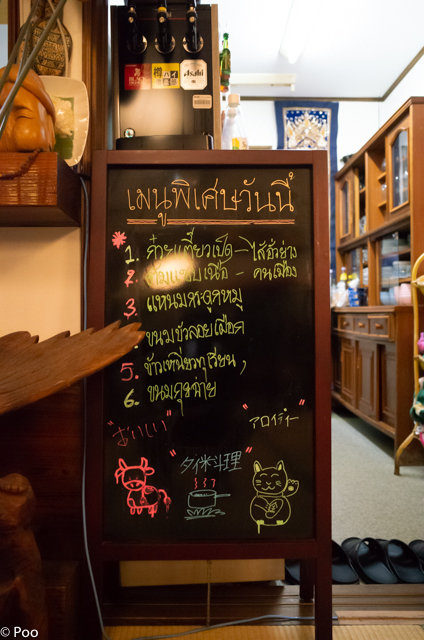 Asahi
เมนูพิเศษวันนี้
*
1. ก๋วยเตี๋ยวเป็ด - ไส้อั่วย่าง
2. ต้มแซ่บเนื้อ - คนเมือง
3. แหนมกระดูกหมู
ขนมบัวลอยเผือก
5. ข้าวเหนียวทุเรียน,
6. ขนมกุยช่าย
"おいしい"
"アロイディー"
"タイ料理"
© Poo